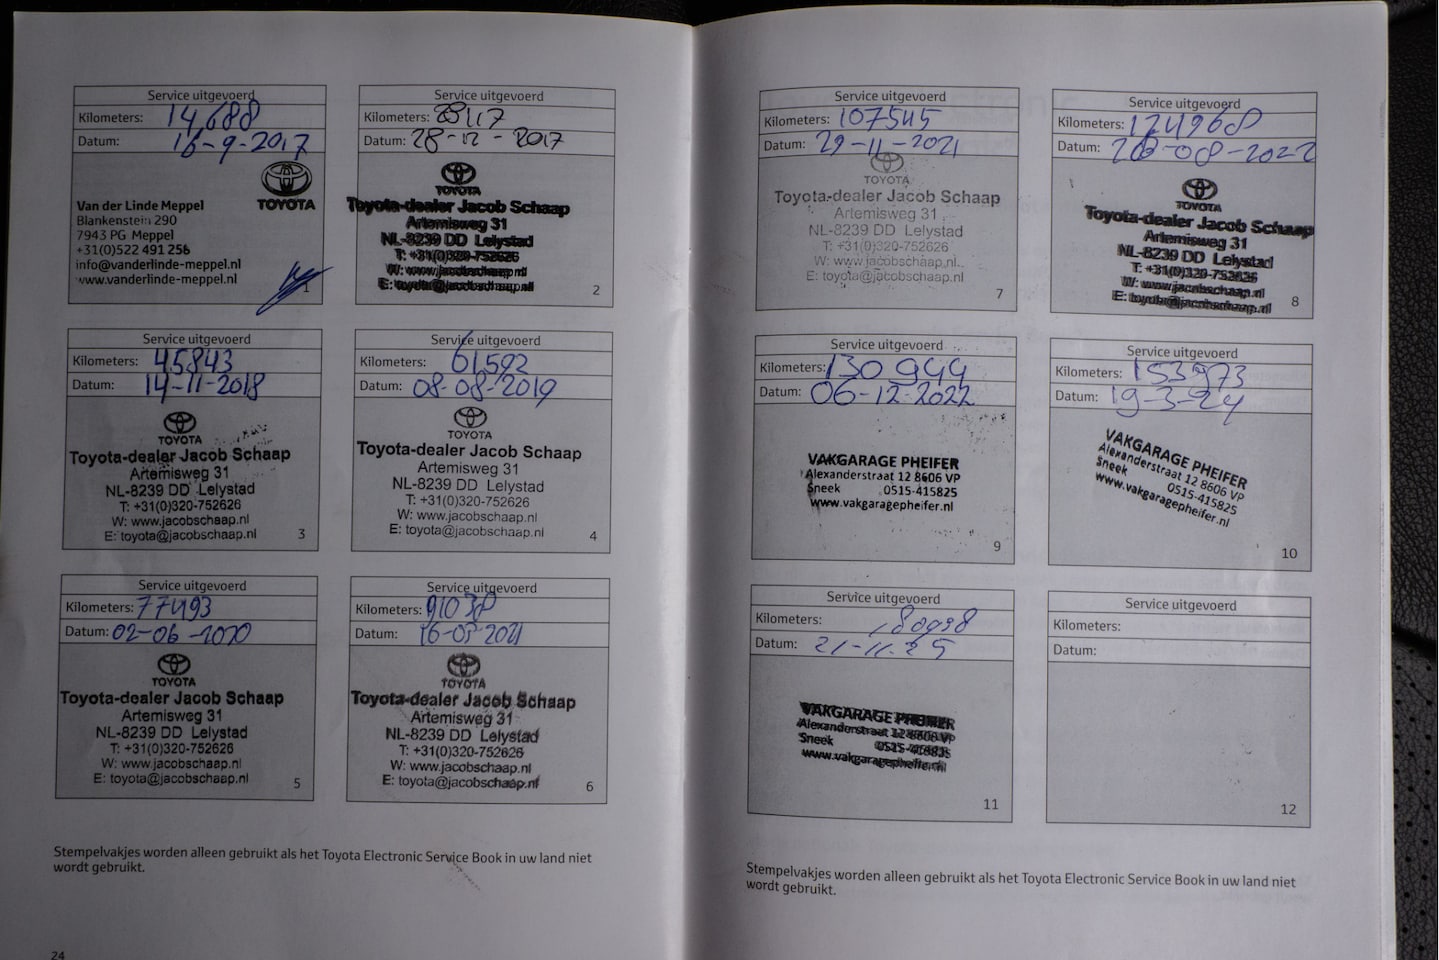 Service uitgevoerd
Kilometers: 14688
Datum: 16-9-2017
TOYOTA
Van der Linde Meppel
Blankenstein 290
7943 PG Meppel
+31(0)522 491 256
info@vanderlinde-meppel.nl
www.vanderlinde-meppel.nl
1
Service uitgevoerd
Kilometers: 23117
Datum: 28-12-2017
TOYOTA
Toyota-dealer Jacob Schaap
Artemisweg 31
NL-8239 DD Lelystad
T: +31(0)320-752626
W: www.jacobschaap.nl
E: toyota@jacobschaap.nl
2
Service uitgevoerd
Kilometers: 45843
Datum: 14-11-2018
TOYOTA
Toyota-dealer Jacob Schaap
Artemisweg 31
NL-8239 DD Lelystad
T: +31(0)320-752626
W: www.jacobschaap.nl
E: toyota@jacobschaap.nl
3
Service uitgevoerd
Kilometers: 61592
Datum: 08-08-2019
TOYOTA
Toyota-dealer Jacob Schaap
Artemisweg 31
NL-8239 DD Lelystad
T: +31(0)320-752626
W: www.jacobschaap.nl
E: toyota@jacobschaap.nl
4
Service uitgevoerd
Kilometers: 77493
Datum: 02-06-2020
TOYOTA
Toyota-dealer Jacob Schaap
Artemisweg 31
NL-8239 DD Lelystad
T: +31(0)320-752626
W: www.jacobschaap.nl
E: toyota@jacobschaap.nl
5
Service uitgevoerd
Kilometers: 91038
Datum:
TOYOTA
Toyota-dealer Jacob Schaap
Artemisweg 31
NL-8239 DD Lelystad
T: +31(0)320-752626
W: www.jacobschaap.nl
E: toyota@jacobschaap.nl
6
Stempelvakjes worden alleen gebruikt als het Toyota Electronic Service Book in uw land niet
wordt gebruikt.
24
Service uitgevoerd
Kilometers: 107545
Datum: 29-11-2021
TOYOTA
Toyota-dealer Jacob Schaap
Artemisweg 31
NL-8239 DD Lelystad
T: +31(0)320-752626
W: www.jacobschaap.nl
E: toyota@jacobschaap.nl
7
Service uitgevoerd
Kilometers: 124968
Datum:
TOYOTA
Toyota-dealer Jacob Schaap
Artemisweg 31
NL-8239 DD Lelystad
T: +31(0)320-752626
W: www.jacobschaap.nl
E: toyota@jacobschaap.nl
8
Service uitgevoerd
Kilometers: 130944
Datum: 06-12-2022
VAKGARAGE PHEIFER
Alexanderstraat 12 8606 VP
Sneek 0515-415825
www.vakgaragepheifer.nl
9
Service uitgevoerd
Kilometers: 153973
Datum: 19-3-24
VAKGARAGE PHEIFER
Alexanderstraat 12 8606 VP
Sneek 0515-415825
www.vakgaragepheifer.nl
10
Service uitgevoerd
Kilometers: 180998
Datum: 21-11-25
VAKGARAGE PHEIFER
Alexanderstraat 12 8606 VP
Sneek 0515-415825
www.vakgaragepheifer.nl
11
Service uitgevoerd
Kilometers:
Datum:
12
Stempelvakjes worden alleen gebruikt als het Toyota Electronic Service Book in uw land niet
wordt gebruikt.